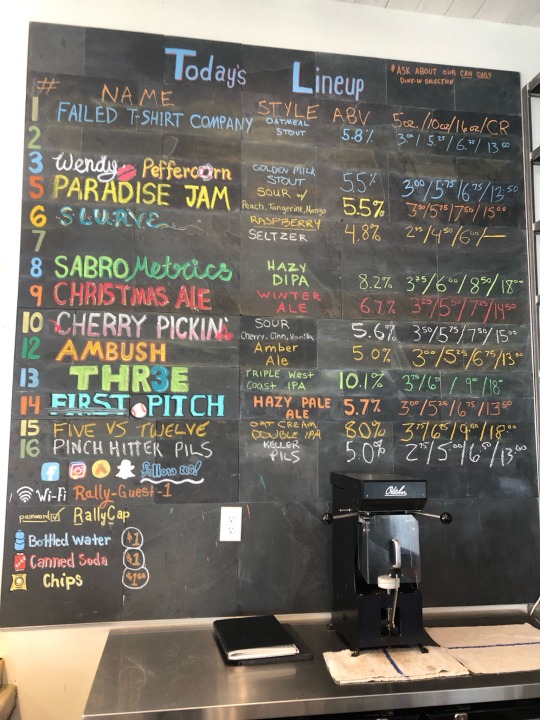 Today's Lineup
*ASK ABOUT OUR CAN ONLY
DINE-IN SELECTION
# NAME STYLE ABV 5oz/10oz/16oz/CR
1 FAILED T-SHIRT COMPANY OATMEAL STOUT 5.8% 3⁰⁰/5²⁵/6⁷⁵/13⁵⁰
2
3 Wendy Peffercorn GOLDEN MILK STOUT 5.5% 3⁰⁰/5⁷⁵/6⁷⁵/13⁵⁰
5 PARADISE JAM SOUR w/ Peach, Tangerine, Mango 5.5% 3⁵⁰/5⁷⁵/7⁵⁰/15⁰⁰
6 SLURVE RASPBERRY SELTZER 4.8% 2⁷⁵/4⁵⁰/6⁰⁰/—
7
8 SABRO Metrics HAZY DIPA 8.2% 3⁷⁵/6⁰⁰/8⁵⁰/18⁰⁰
9 CHRISTMAS ALE WINTER ALE 6.7% 3²⁵/5⁵⁰/7²⁵/14⁵⁰
10 CHERRY PICKIN' SOUR Cherry, Cinn, Vanilla 5.6% 3⁵⁰/5⁷⁵/7⁵⁰/15⁰⁰
12 AMBUSH Amber Ale 5.0% 3⁰⁰/5²⁵/6⁷⁵/13⁵⁰
13 THR3E TRIPLE West Coast IPA 10.1% 3⁷⁵/6²⁵/9⁰⁰/18⁰⁰
14 FIRST PITCH HAZY PALE ALE 5.7% 3⁰⁰/5²⁵/6⁷⁵/13⁵⁰
15 FIVE VS TWELVE OAT CREAM DOUBLE IPA 8.0% 3⁷⁵/6²⁵/9⁰⁰/18⁰⁰
16 PINCH HITTER PILS KELLER PILS 5.0% 2⁷⁵/5⁰⁰/6⁵⁰/13⁰⁰
follow us!
Wi-Fi Rally-Guest-1
password RallyCap
Bottled Water $1
Canned Soda $1
Chips $1⁵⁰